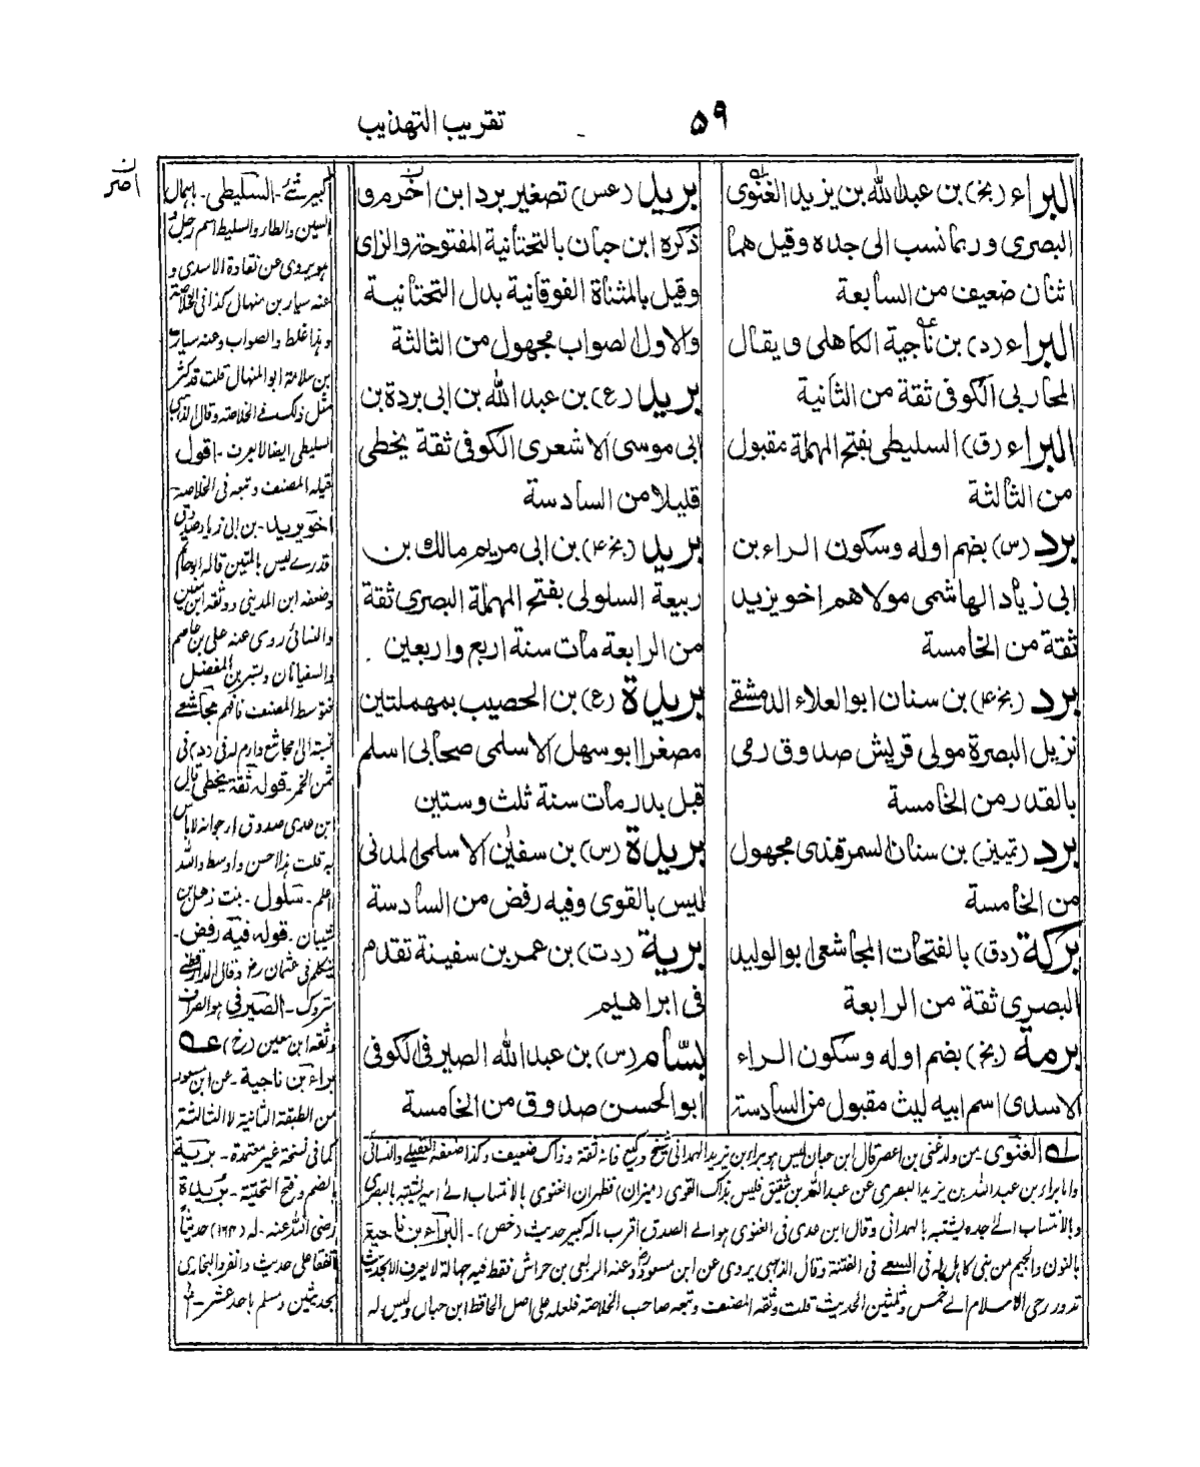 ۵۹
تقریب التهذیب
البراء (بخ) بن عبدالله بن یزید الغنوی
البصری وربما نسب الی جده وقیل هما
اثنان ضعیف من السابعة
البراء (د) بن ناجیة الکاهلی ویقال
المحاربی الکوفی ثقة من الثانیة
البراء (ق) السلیطی بفتح المهملة مقبول
من الثالثة
برد (س) بضم اوله وسکون الراء بن
ابی زیاد الهاشمی مولاهم اخو یزید
ثقة من الخامسة
برد (بخ۴) بن سنان ابو العلاء الدمشقی
نزیل البصرة مولی قریش صدوق رمی
بالقدر من الخامسة
برد (تمییز) بن سنان السمرقندی مجهول
من الخامسة
برکة (دق) بالفتحات المجاشعی ابو الولید
البصری ثقة من الرابعة
برمة (بخ) بضم اوله وسکون الراء
الاسدی اسم ابیه لیث مقبول من السادسة
برید (عس) تصغیر برد ابن اخرم و
ذکره ابن حبان بالتحتانیة المفتوحة والزای
وقیل بالمثناة الفوقانیة بدل التحتانیة
والاول لصواب مجهول من الثالثة
برید (ع) بن عبد الله بن ابی بردة بن
ابی موسی الاشعری الکوفی ثقة یخطی
قلیلا من السادسة
برید (بخ۴) بن ابی مریم مالک بن
ربیعة السلولی بفتح المهملة البصری ثقة
من الرابعة مات سنة اربع واربعین
بریدة (ع) بن الحصیب بمهملتین
مصغرا ابو سهل الاسلمی صحابی اسلم
قبل بدر مات سنة ثلث وستین
بریدة (س) بن سفین الاسلمی المدنی
لیس بالقوی وفیه رفض من السادسة
بریة (دت) بن عمر بن سفینة تقدم
فی ابراهیم
بسّام (س) بن عبد الله الصیرفی الکوفی
ابو الحسن صدوق من الخامسة
السلیطی - باهمال
السین والطاء والسلیط اسم رجل و
هو یروی عن نقادة الاسدی و
عنه سیار بن منهال کذا فی الخلاصة
وهذا غلط والصواب وعنه سیار
بن سلامة ابو المنهال قلت قد کثر
مثل ذلک فی الخلاصة وقال الذهبی
السلیطی ایضا لا یعرف - اقول
المصنف وتبعه فی الخلاصة
اخو یرید - بن ابی زیاد صدوق
قدری لیس بالمتین قاله ابو حاتم
وضعفه ابن المدینی ووثقه ابن معین
والنسائی روی عنه علی بن عاصم
والسفیانان وبشر بن المفضل
فتوسط المصنف فافهم مجاشعی
نسبة الی مجاشع دارم له فی (د د) فی
ثمن الخمر - قوله ثقة یخطی قال
ابن عدی صدوق ارجو انه لا باس
به قلت هذا احسن واوسط والله
اعلم - سلول - بنت ذهل بن
شیبان - قوله فیه رفض -
یتکلم فی عثمان رض وقال الدارقطنی
متروک - الصیرفی هو
وثقه ابن معین (خ) عه
براء بن ناجیة - عن ابن مسعود
من الطبقة الثانیة لا الثالثة
کما فی نسخة غیر معتمدة - بریة
بالضم وفتح التحتیة - بریدة
رضی الله عنه - له (۱۶۴) حدیثا
اتفقا علی حدیث وانفرد البخاری
بحدیثین ومسلم باحد عشر -
له الغنوی - من ولد غنی بن اعصر قال ابن حبان لیس هو براء بن یزید الهمدانی شیخ وکیع فانه ثقة وذاک ضعیف وکذا ضعفه العقیلی والنسائی
واما براء بن عبد الله بن یزید البصری عن عبد الله بن شقیق فلیس بذاک القوی (میزان) فظهر ان الغنوی بالانتساب الی یشتبه بالبصری
وبالانتساب الی جده یشتبه بالهمدانی وقال ابن عدی فی الغنوی هو الی الصدق اقرب ماله کبیر حدیث (خص) - البراء بن ناجیة
بالنون والجیم من بنی کاهل له فی السبعی فی الفتنة وقال الذهبی یروی عن ابن مسعود رض وعنه الربعی بن حراش فقط فیه جهالة لا یعرف الا بحدیث
تدور رحی الاسلام الی خمس وثلثین الحدیث قلت وثقه المصنف وتبعه صاحب الخلاصة فلعله علی اصل الحافظ ابن حبان ولیس له